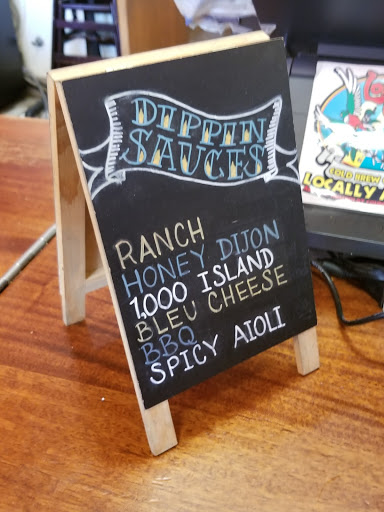 DIPPIN
SAUCES
RANCH
HONEY DIJON
1,000 ISLAND
BLEU CHEESE
BBQ
SPICY AIOLI
COLD BREW
LOCALLY